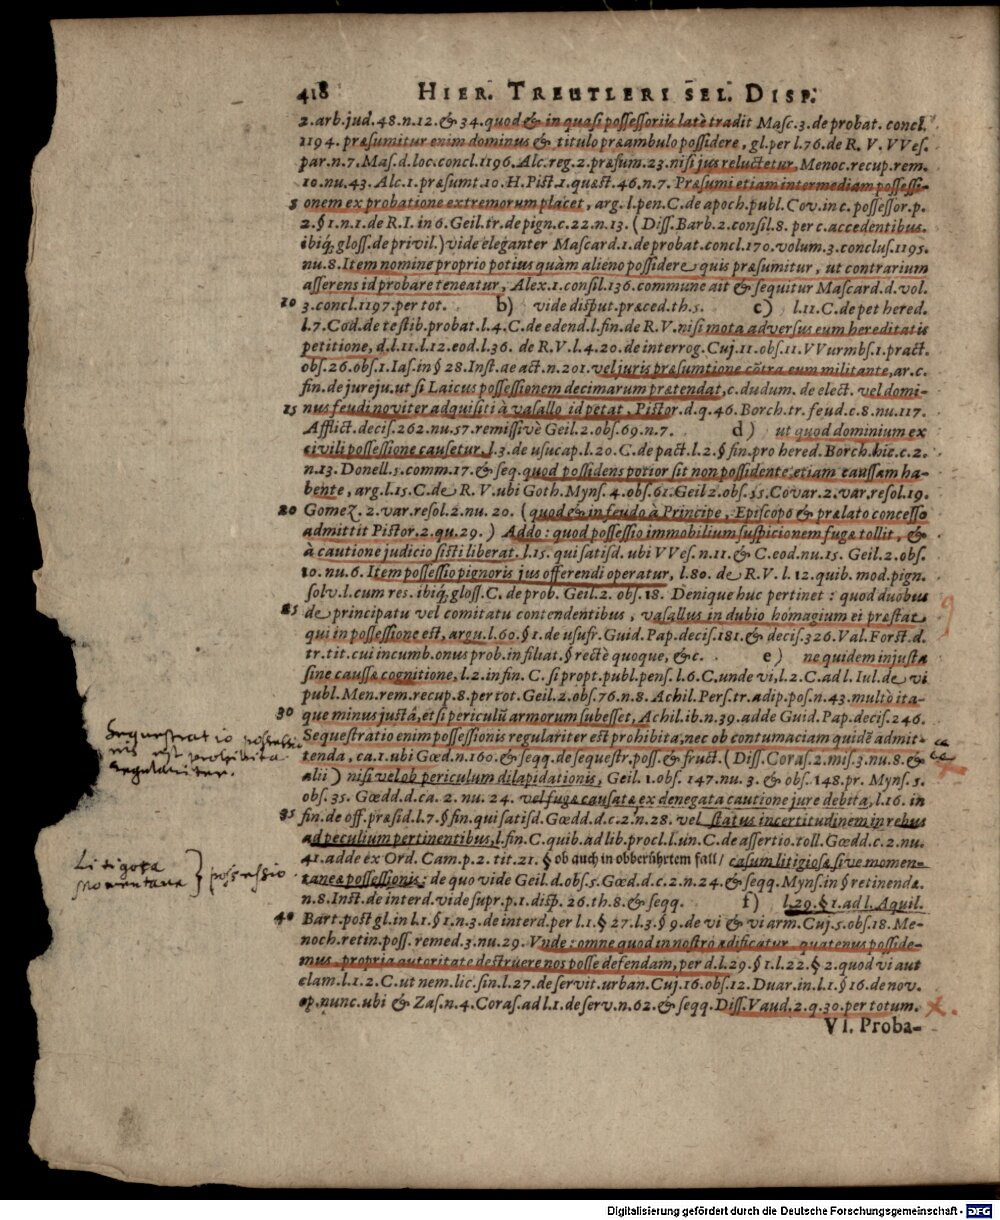 418 HIER. TREUTLERI SEL. DISP.
2. arb. jud. 48. n. 12. & 34. quod & in quasi possessoriis latè tradit Masc. 3. de probat. concl.
1194. præsumitur enim dominus & titulo præambulo possidere, gl. per l. 76. de R. V. VVes.
par. n. 7. Mas. d. loc. concl. 1196. Alc. reg. 2. præsum. 23. nisi jus reluctetur, Menoc. recup. rem.
10. nu. 43. Alc. 1. præsumt. 10. H. Pist. 1. quæst. 46. n. 7. Præsumi etiam intermediam possessi-
5 onem ex probatione extremorum placet, arg. l. pen. C. de apoch. publ. Cov. in c. possessor. p.
2. § 1. n. 1. de R. I. in 6. Geil. tr. de pign. c. 22. n. 13. (Diss. Barb. 2. consil. 8. per c. accedentibus.
ibiq; gloss. de privil.) vide eleganter Mascard. 1. de probat. concl. 170. volum. 3. conclus. 1195.
nu. 8. Item nomine proprio potius quàm alieno possidere quis præsumitur, ut contrarium
asserens id probare teneatur, Alex. 1. consil. 136. commune ait & sequitur Mascard. d. vol.
10 3. concl. 1197. per tot. b) vide disput. præced. th. 5. c) l. 11. C. de pet hered.
l. 7. Cod. de testib. probat. l. 4. C. de edend. l. fin. de R. V. nisi mota adversus eum hereditatis
petitione, d. l. 11. l. 12. eod. l. 36. de R. V. l. 4. 20. de interrog. Cuj. 11. obs. 11. VVurmbs. 1. pract.
obs. 26. obs. 1. Ias. in § 28. Inst. ae act. n. 201. vel juris præsumtione cõtra eum militante, ar. c.
fin. de jureju. ut si Laicus possessionem decimarum prætendat, c. dudum. de elect. vel domi-
15 nus feudi noviter adquisiti à vasallo id petat. Pistor. d. q. 46. Borch. tr. feud. c. 8. nu. 117.
Afflict. decis. 262. nu. 57. remissivè Geil. 2. obs. 69. n. 7. d) ut quod dominium ex
civili possessione causetur. l. 3. de usucap. l. 20. C. de pact. l. 2. § fin. pro hered. Borch. hic. c. 2.
n. 13. Donell. 5. comm. 17. & seq. quod possidens potior sit non possidente etiam caussam ha-
bente, arg. l. 15. C. de R. V. ubi Goth. Myns. 4. obs. 61. Geil 2. obs. 55. Covar. 2. var. resol. 19.
20 Gomez. 2. var. resol. 2. nu. 20. (quod & in feudo à Principe, Episcopo & prælato concesso
admittit Pistor. 2. qu. 29.) Addo: quod possessio immobilium suspicionem fugæ tollit, &
à cautione judicio sisti liberat. l. 15. qui satisd. ubi VVes. n. 11. & C. eod. nu. 15. Geil. 2. obs.
10. nu. 6. Item possessio pignoris jus offerendi operatur, l. 80. de R. V. l. 12. quib. mod. pign.
solv. l. cum res. ibiq; gloss. C. de prob. Geil. 2. obs. 18. Denique huc pertinet: quod duobus
25 de principatu vel comitatu contendentibus, vasallus in dubio homagium ei præstat
qui in possessione est, argu. l. 60. § 1. de usufr. Guid. Pap. decis. 181. & decis. 326. Val. Forst. d.
tr. tit. cui incumb. onus prob. in filiat. § rectè quoque, &c. e) ne quidem injusta
sine caussæ cognitione, l. 2. in fin. C. si propt. publ. pens. l. 6. C. unde vi, l. 2. C. ad l. Iul. de vi
publ. Men. rem. recup. 8. per tot. Geil. 2. obs. 76. n. 8. Achil. Pers. tr. adip. pos. n. 43. multò ita-
30 que minus justâ, etsi periculũ armorum subesset, Achil. ib. n. 39. adde Guid. Pap. decis. 246.
Sequestratio enim possessionis regulariter est prohibita, nec ob contumaciam quidẽ admit-
tenda, ca. 1. ubi Gœd. n. 160. & seqq. de sequestr. poss. & fruct. (Diss. Coras. 2. mis. 3. nu. 8. &
alii) nisi vel ob periculum dilapidationis, Geil. 1. obs. 147. nu. 3. & obs. 148. pr. Myns. 5.
obs. 35. Gœdd. d. ca. 2. nu. 24. vel fuga causatæ ex denegata cautione jure debita, l. 16. in
35 fin. de off. præsid. l. 7. § fin. qui satisd. Gœdd. d. c. 2. n. 28. vel status incertitudinem in rebus
ad peculium pertinentibus, l. fin. C. quib. ad lib. procl. l. un. C. de assertio. toll. Gœdd. c. 2. nu.
41. adde ex Ord. Cam. p. 2. tit. 21. § ob auch in obberührtem fall / casum litigiosæ sive momen-
taneæ possessionis: de quo vide Geil. d. obs. 5. Gœd. d. c. 2. n. 24. & seqq. Myns. in § retinendæ.
n. 8. Inst. de interd. vide supr. p. 1. disp. 26. th. 8. & seqq. f) l. 29. § 1. ad l. Aquil.
40 Bart. post gl. in l. 1. § 1. n. 3. de interd. per l. 1. § 27. l. 3. § 9. de vi & vi arm. Cuj. 5. obs. 18. Me-
noch. retin. poss. remed. 3. nu. 29. Vnde: omne quod in nostro ædificatur, quatenus posside-
mus, propria autoritate destruere nos posse defendam, per d. l. 29. § 1. l. 22. § 2. quod vi aut
clam. l. 1. 2. C. ut nem. lic. sin. l. 27. de servit. urban. Cuj. 16. obs. 12. Duar. in. l. 1. § 16. de nov.
op. nunc. ubi & Zas. n. 4. Coras. ad l. 1. de serv. n. 62. & seqq. Diss. Vaud. 2. q. 30. per totum.
VI. Proba-
Sequestratio possessio
nis est prohibita
regulariter.
Litigosa
Momentana } possessio
Digitalisierung gefördert durch die Deutsche Forschungsgemeinschaft - DFG